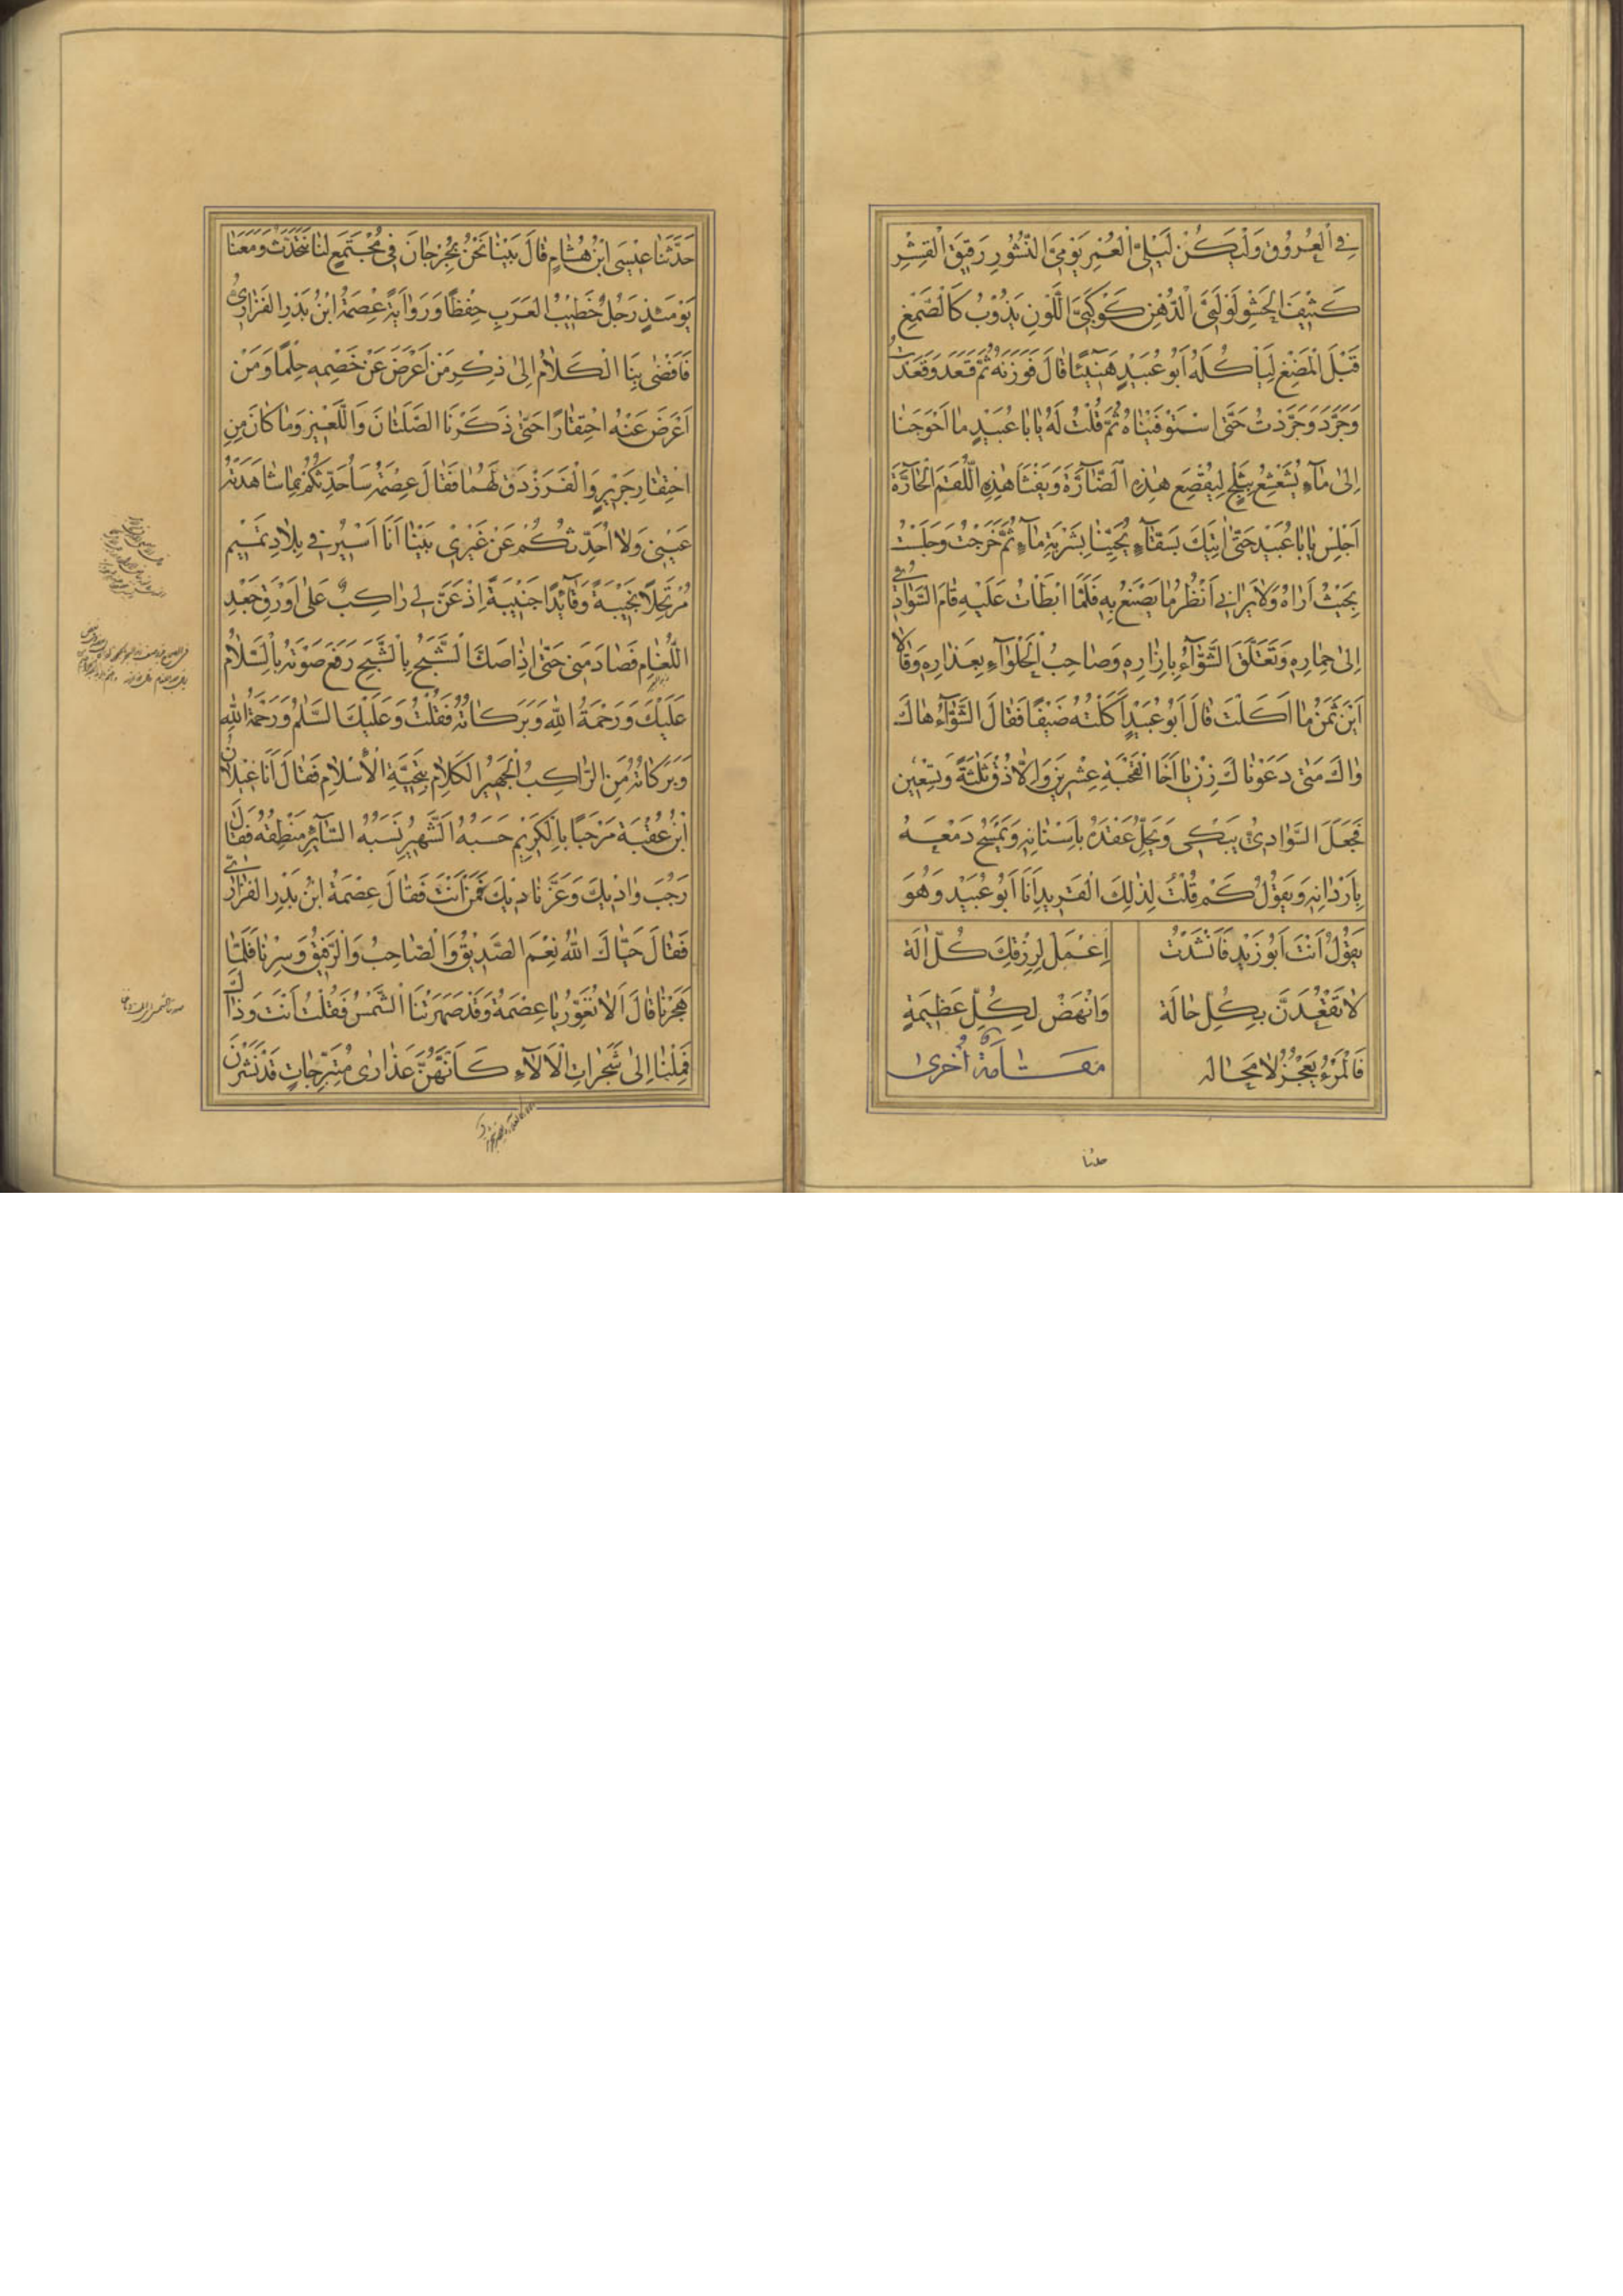 في العروق وليكن ليلي العمر يومي النشور رقيق القشر
كثيف الحشو لؤلؤي الدهن كوكبي اللون يذوب كالصمغ
قبل المضغ ليأكله أبو عبيد هنيئا قال فوزنه ثم قعد وقعدت
وجرد وجردت حتى استوفيناه ثم قلت له يابا عبيد ما احوجنا
إلى ماء يشعشع بثلج ليقصع هذه الصارة ويفثأ هذه اللقم الحارة
اجلس يابا عبيد حتى اتيك بسقاء يحيينا بشربة ماء ثم خرجت وجلست
بحيث أراه ولا يراني أنظر ما يصنع به فلما ابطأت عليه قام السوادي
إلى حماره وتعلق الشواء بازاره وصاحب الحلواء بعذاره وقالا
أين ثمن ما اكلت قال أبو عبيد أكلته ضيفا فقال الشواء هاك
واك متى دعوناك زن يا أخا القحبة عشرين والا ذق ثلثة وتسعين
فجعل السوادي يبكي ويحل عقده بأسنانه ويمسح دمعه
بأردانه ويقول كم قلت لذلك القريد أنا أبو عبيد وهو
يقول أنت أبو زيد فأنشدت اعمل لرزقك كل اله
لا تقعدن بكل حالة وانهض لكل عظيمة
فالمرء يعجز لا محاله مقامة أخرى
حدثنا
حدثنا عيسى ابن هشام قال بينا نحن بجرجان في مجتمع لنا نتحدث ومعنا
يومئذ رجل خطيب العرب حفظا ورواية عصمة ابن بدر الفزاري
فافضى بنا الكلام الى ذكر من أعرض عن خصمه حلما ومن
أعرض عنه احتقارا حتى ذكرنا الصلتان واللعين وما كان من
احتقار جرير والفرزدق لهما فقال عصمة سأحدثكم بما شاهدته
عيني ولا أحدثكم عن غيري بينا أنا اسير في بلاد تميم
مرتحلا نجيبة وقائدا جنيبة إذ عن لي راكب على اورق جعد
اللغام فصادمني حتى إذا صك الشبح بالشبح رفع صوته بالسلام
عليك ورحمة الله وبركاته فقلت وعليك السلم ورحمة الله
وبركاته من الراكب الجهير الكلام بتحية الأسلام فقال أنا غيلان
ابن عقبة مرحبا بالكريم حسبه الشهير نسبه السائر منطقه فقال
رحب واديك وعز ناديك فمن أنت فقال عصمة ابن بدر الفزاري
فقال حياك الله نعم الصديق والصاحب والرفيق وسرنا فلما
هجرنا قال ألا نغور يا عصمة وقد صهرتنا الشمس فقلت أنت وذاك
فملنا إلى شجرات الألآء كأنهن عذارى متبرجات قد نشرن